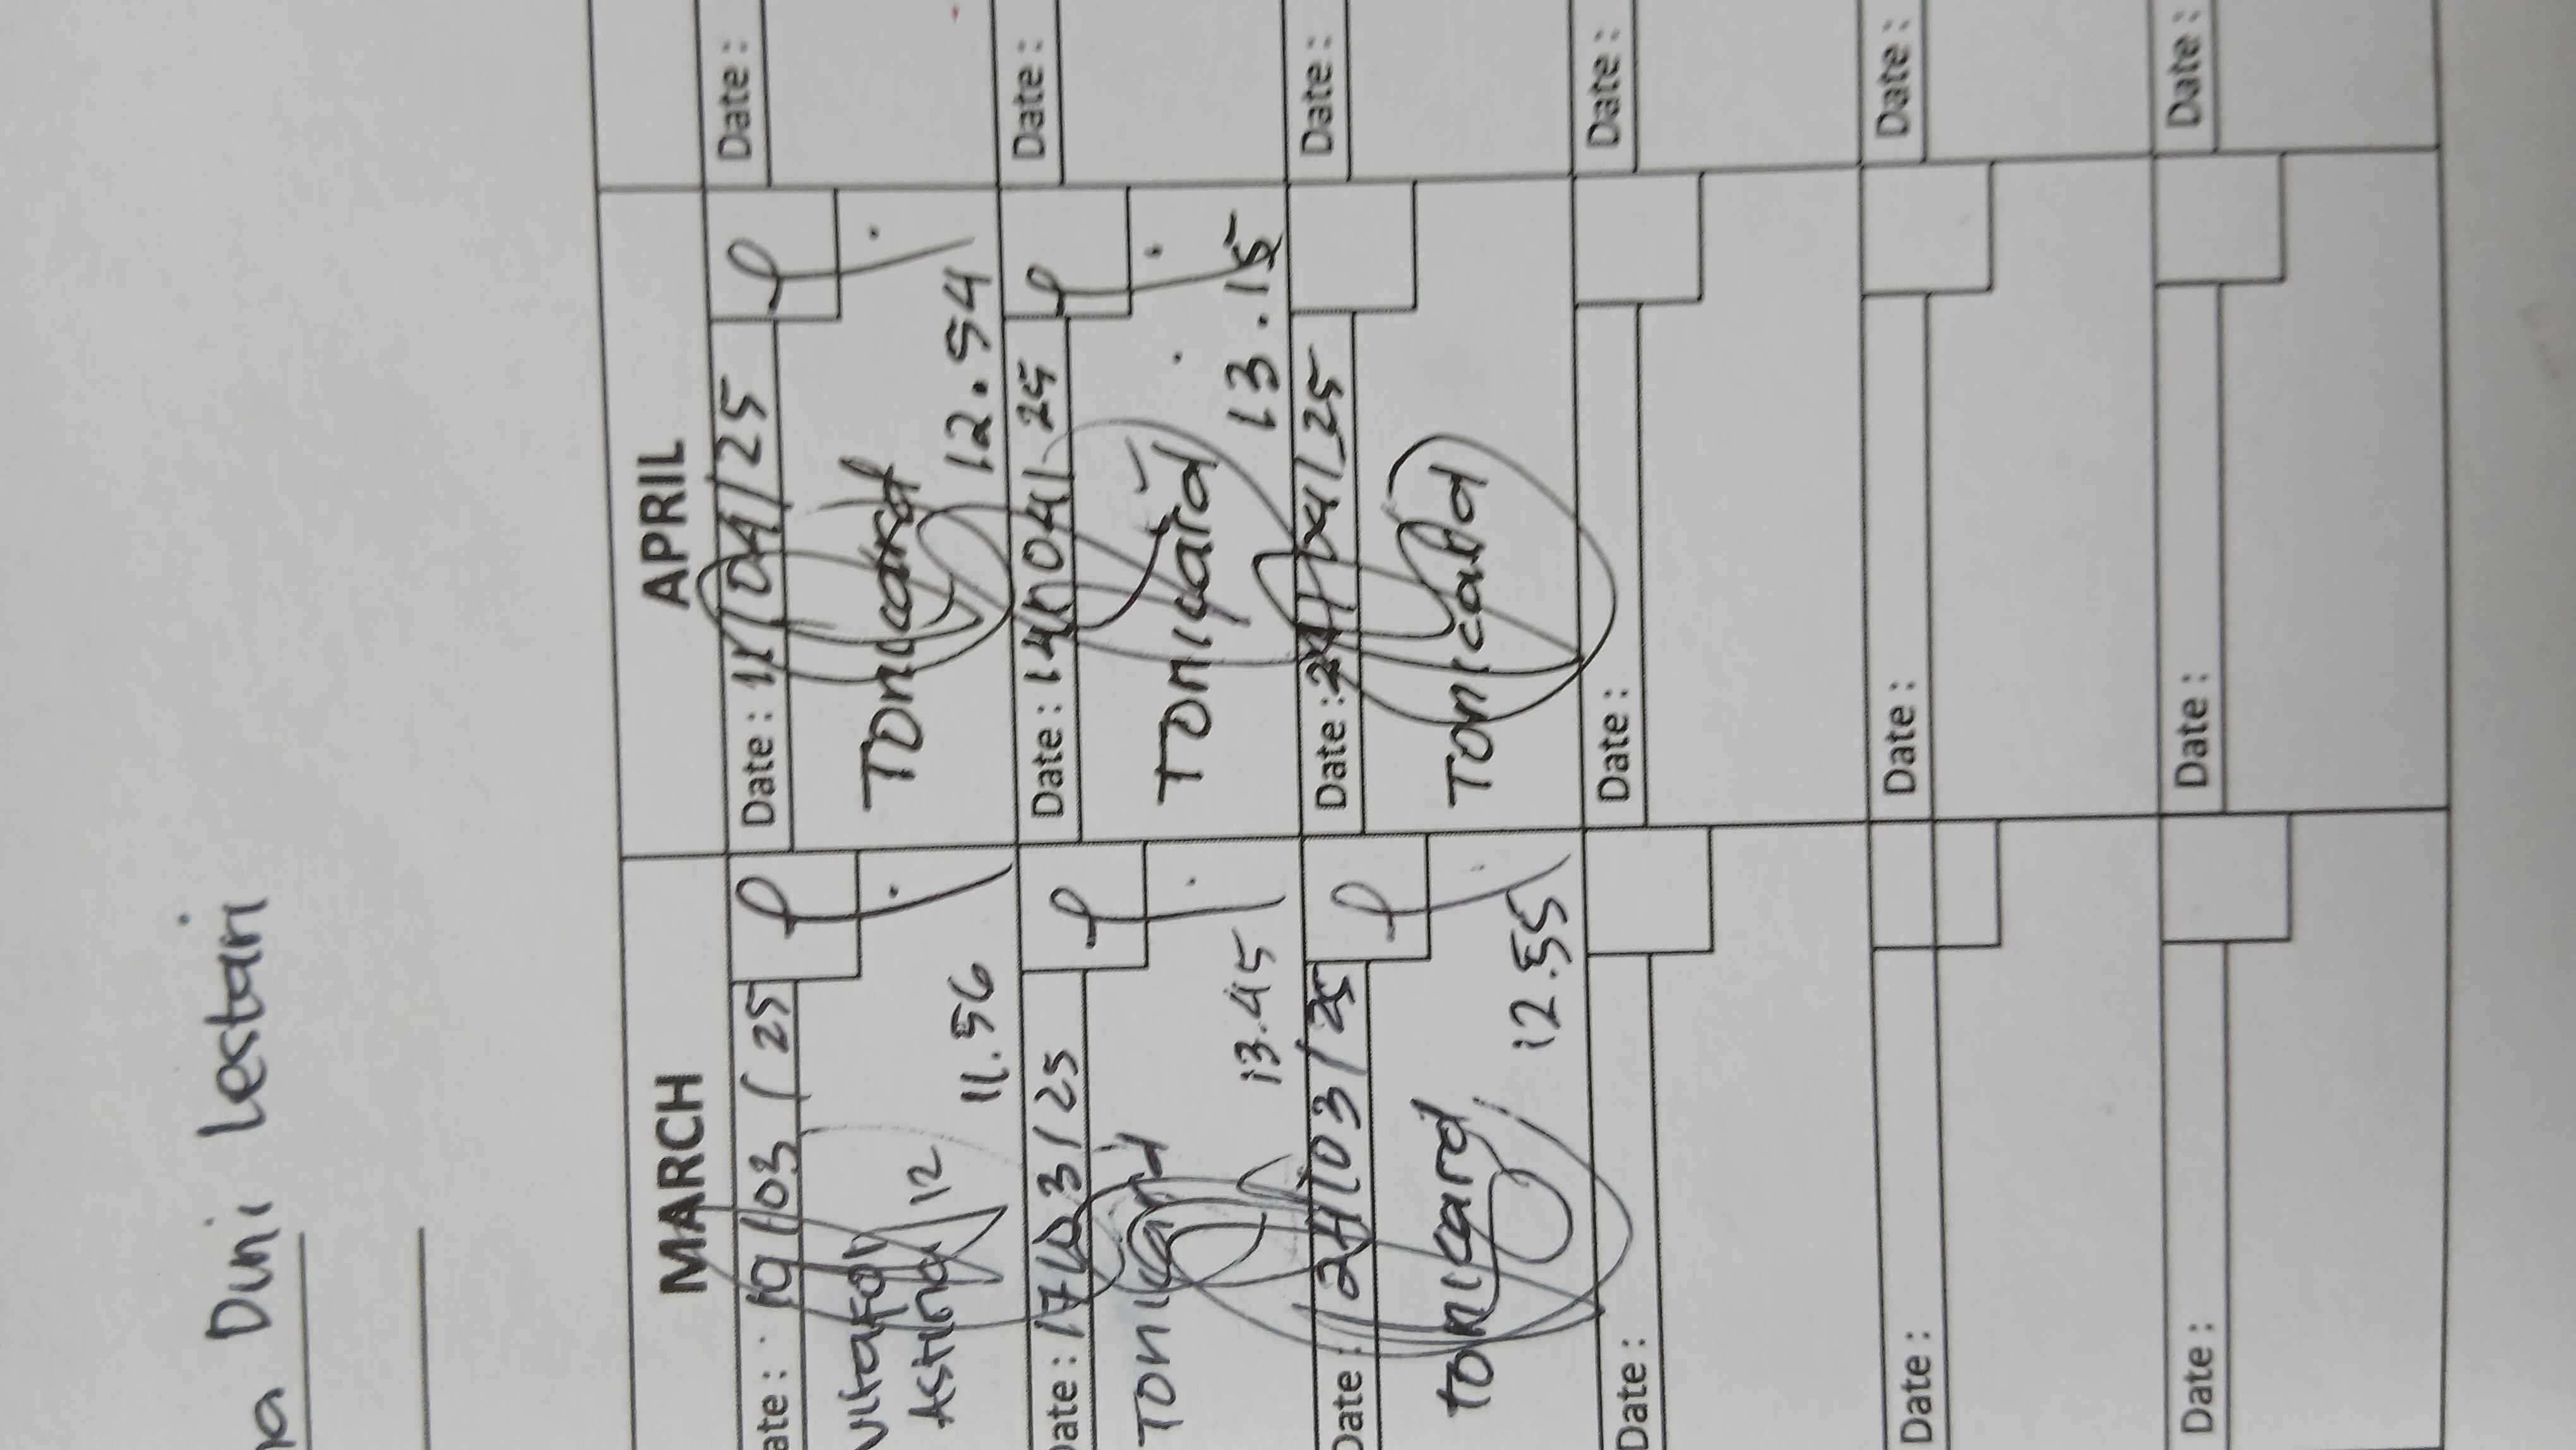 na Dwi Lestari
MARCH
APRIL
ate : 19/03/25
Astina 12
11.56
Date : 11/04/25
Tonicard
12.54
Date :
Date : 17/03/25
Tonicard
13.45
Date : 14/04/25
Tonicard
13.15
Date :
Date : 24/03/25
tonicard
12.55
Date : 24/04/25
Tonicard
Date :
Date :
Date :
Date :
Date :
Date :
Date :
Date :
Date :
Date :